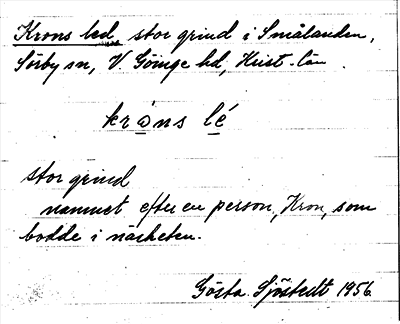 Krons led, stor grind i Smålanden,
Sörby sn, V. Göinge hd, Krist. län
kro̠ns lé̠
stor grind
namnet efter en person, Kron, som
bodde i närheten.
Gösta Sjöstedt 1956.